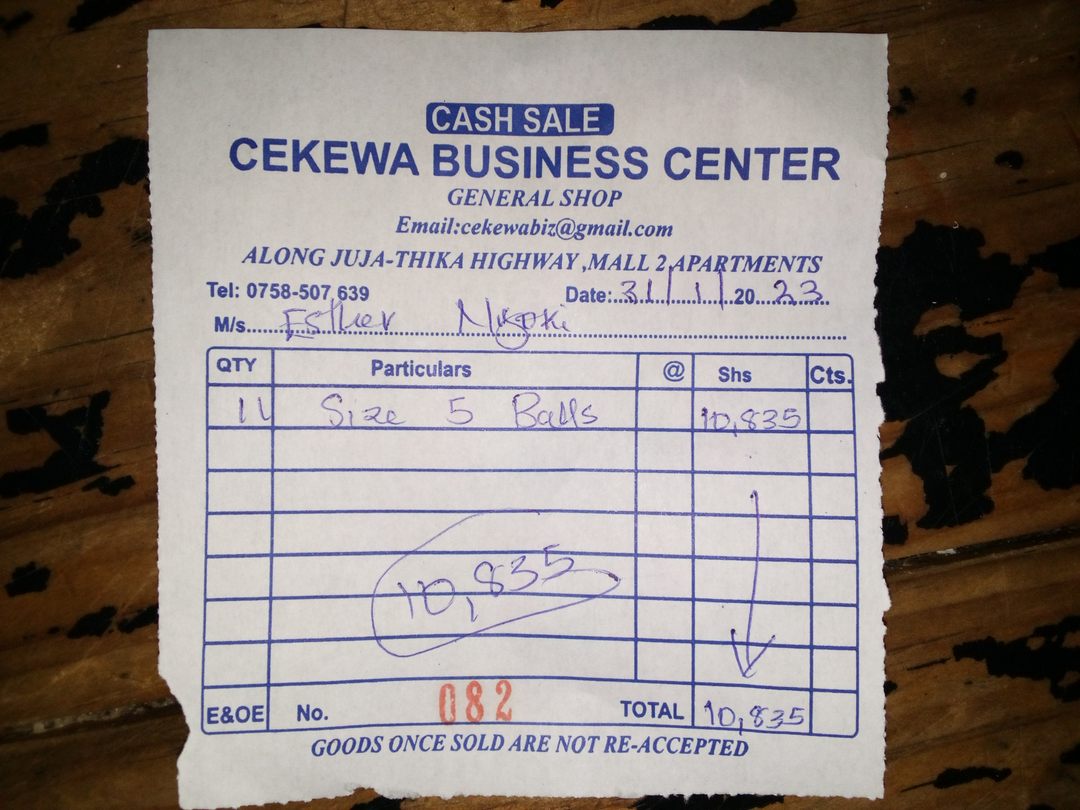 CASH SALE
CEKEWA BUSINESS CENTER
GENERAL SHOP
Email:cekewabiz@gmail.com
ALONG JUJA-THIKA HIGHWAY ,MALL 2 APARTMENTS
Tel: 0758-507 639 Date:..31/1/2023
M/s. Esther
QTY Particulars @ Shs Cts.
11 Size 5 Balls 10,835
10,835
E&OE No. 082 TOTAL 10,835
GOODS ONCE SOLD ARE NOT RE-ACCEPTED